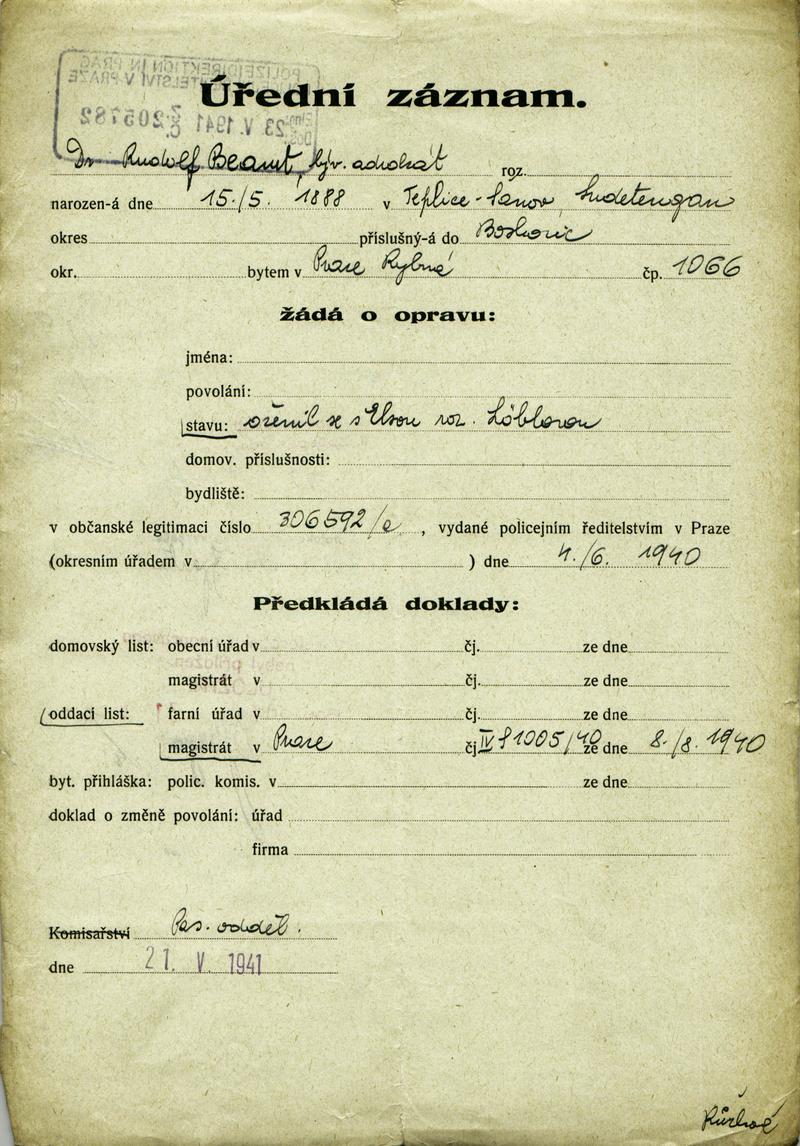 POLIZEIDIREKTION IN PRAG
ŘEDITELSTVÍ V PRAZE
23. V. 1941 205782
Úřední záznam.
Dr Rudolf Beamt, adokát roz.
narozen-á dne 15./5. 1888 v Teplice-Šanov, Sudetengau
okres příslušný-á do
okr. bytem v Praze Rybná čp. 1066
žádá o opravu:
jména:
povolání:
stavu: oženil se s Elsou roz. Löblovou
domov. příslušnosti:
bydliště:
v občanské legitimaci číslo 306592/e, vydané policejním ředitelstvím v Praze
(okresním úřadem v ) dne 4./6. 1940
Předkládá doklady:
domovský list: obecní úřad v čj. ze dne
magistrát v čj. ze dne
oddací list: farní úřad v čj. ze dne
magistrát v Praze čj IV f 1005/40 ze dne 8./8. 1940
byt. přihláška: polic. komis. v ze dne
doklad o změně povolání: úřad
firma
Komisařství Pas. odděl.
dne 21. V. 1941